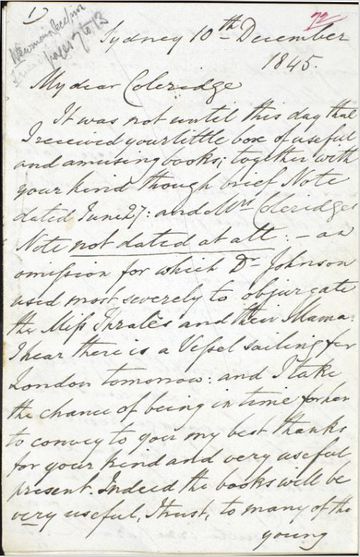 1)
72
Sydney 10th December
1845.
My dear Coleridge
It was not until this day that
I received your little box of useful
and amusing books; together with
your kind though brief Note
dated June 27: and Mrs Coleridge's
Note not dated at all: - an
omission for which Dr Johnson
used most severely to objurgate
the Miss Thrales and their Mama.
I hear there is a Vessel sailing for
London tomorrow: and I take
the chance of being in time for her
to convey to you my best thanks
for your kind and very useful
present. Indeed the books will be
very useful, I trust, to many of the
young